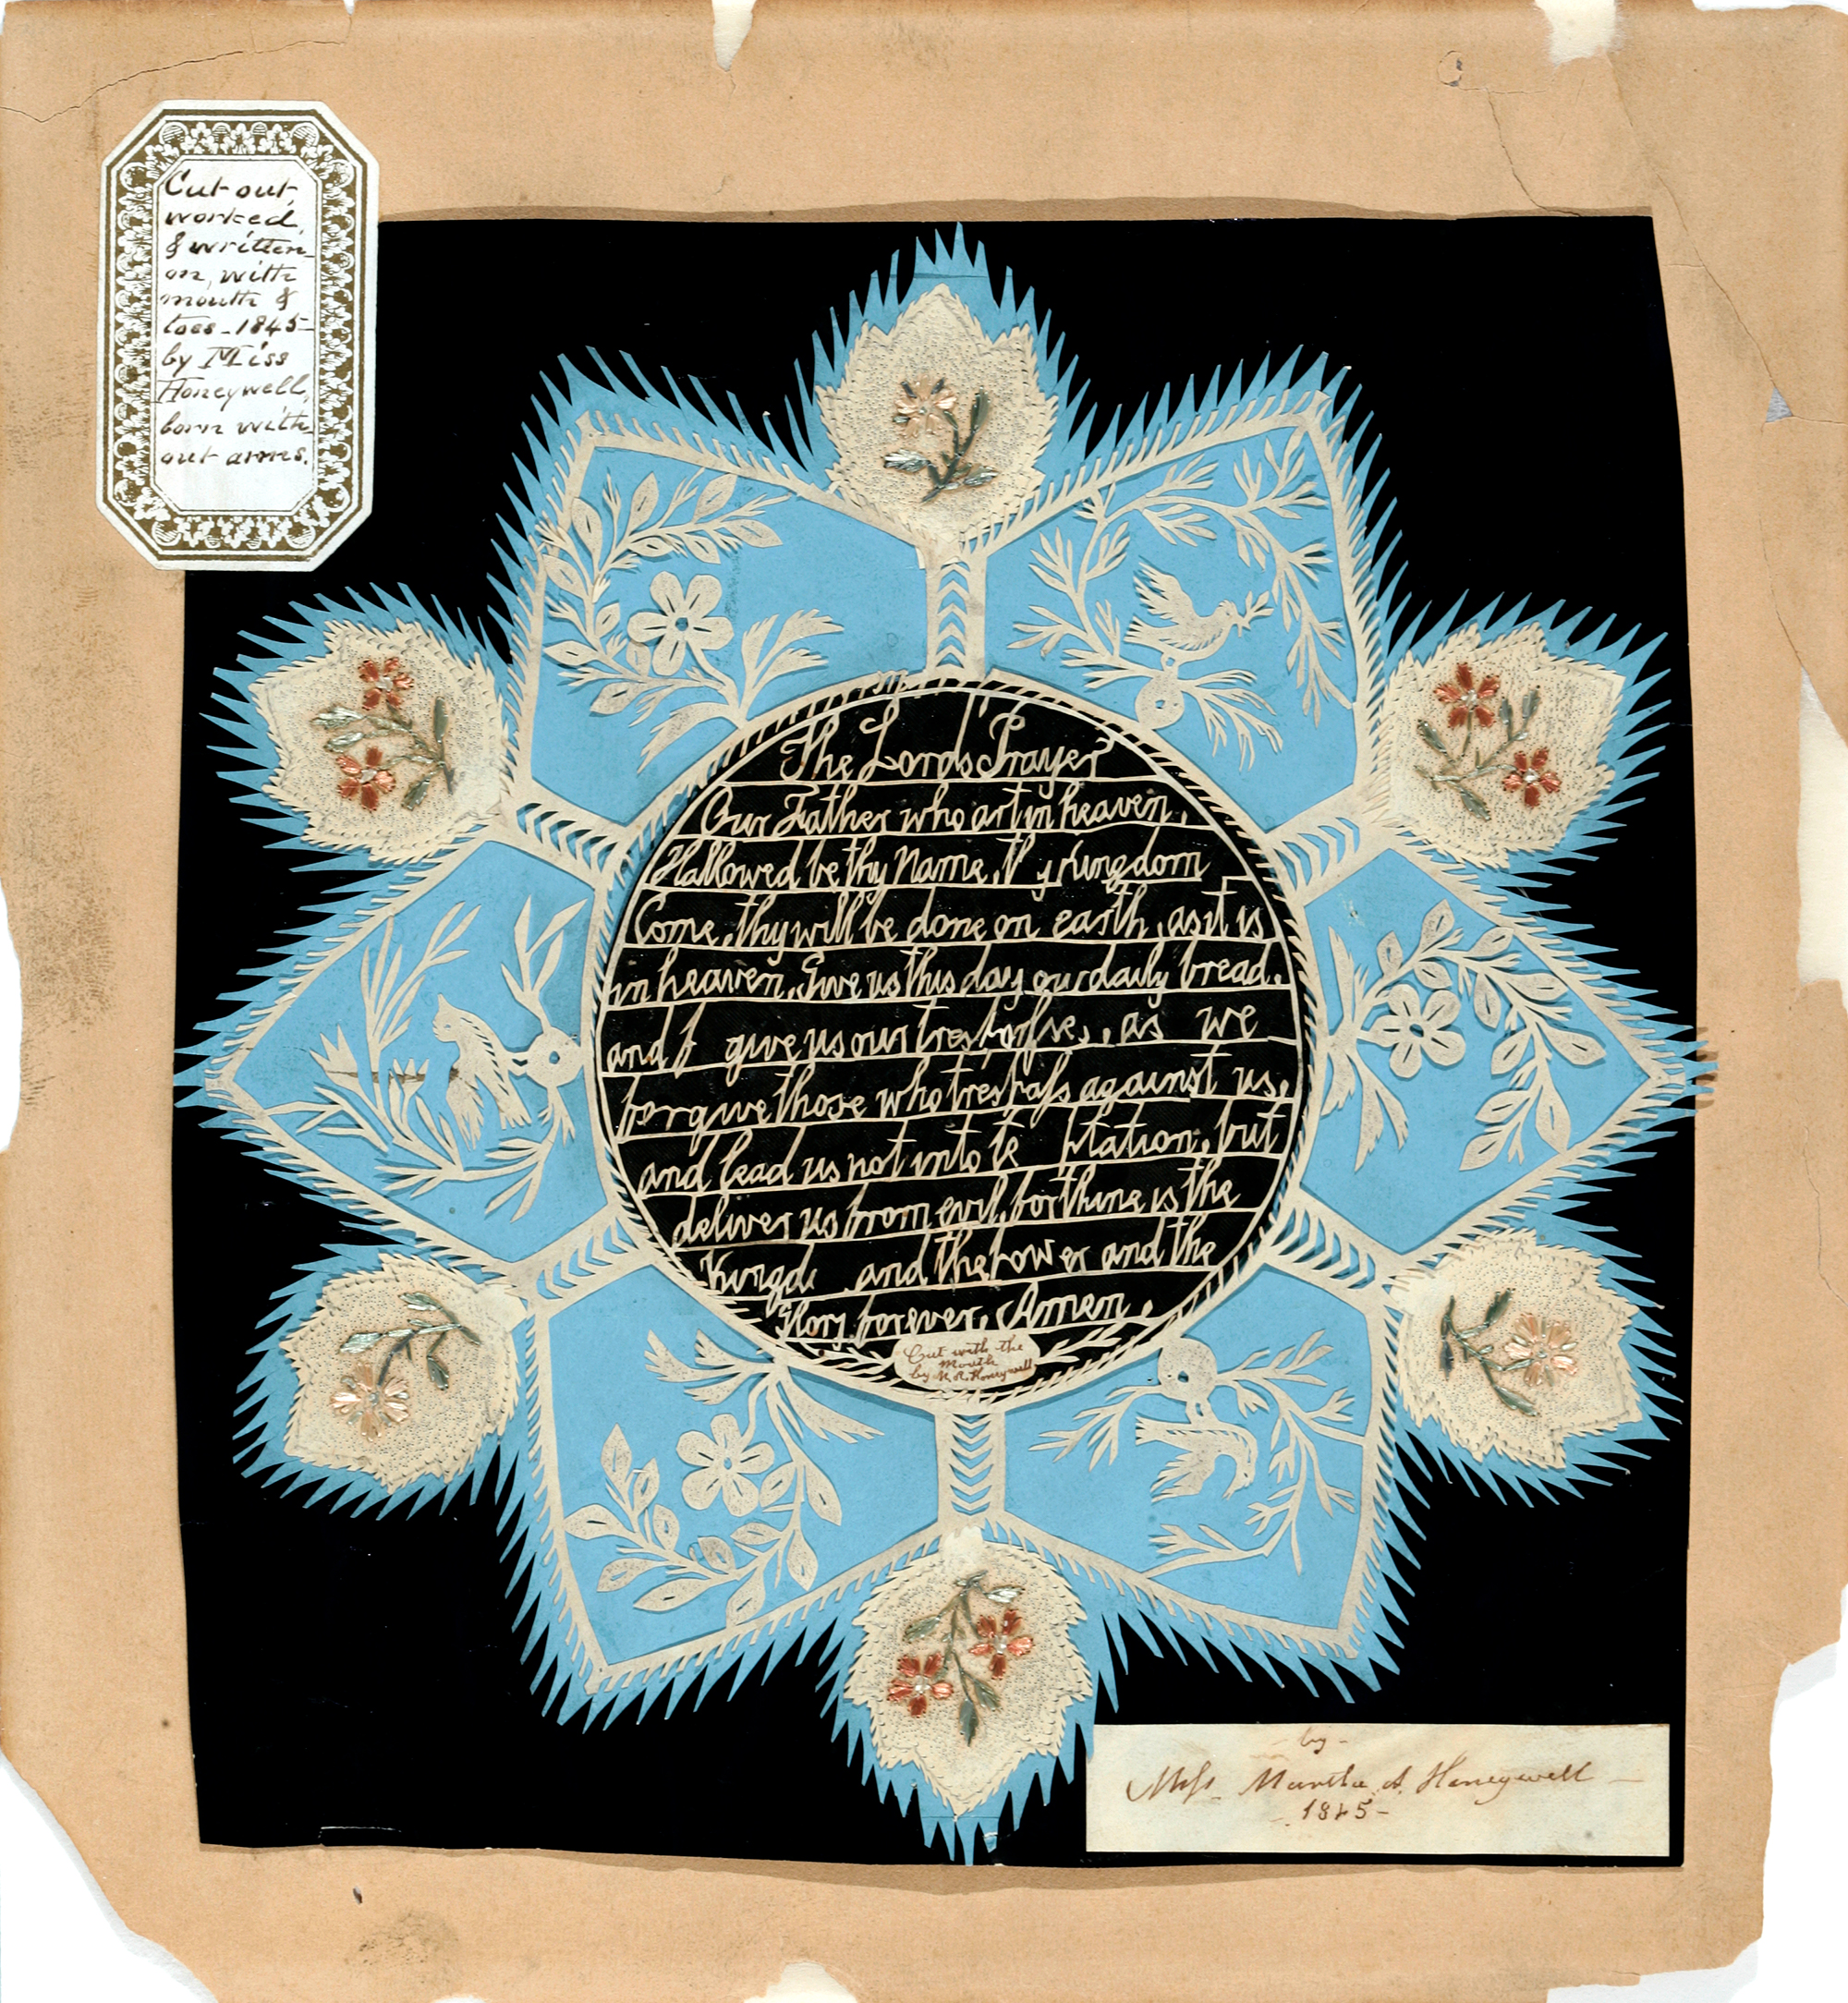 Cut out,
worked,
& written
on, with
mouth &
toes - 1845 -
by Miss
Honeywell,
born with
out arms.
The Lord's Prayer
Our Father who art in heaven,
Hallowed be thy Name, th y Kingdom
Come, thy will be done on earth, as it is
in heaven, Give us this day our daily bread.
and f give us our trespasses, as we
forgive those who trespass against us,
and lead us not into te ptation, but
deliver us from evil, for thine is the
Kingd and the Power and the
Glory forever, Amen.
Cut with the
Mouth
by M. A. Honeywell
by -
Miss. Martha A. Honeywell -
- 1845 -